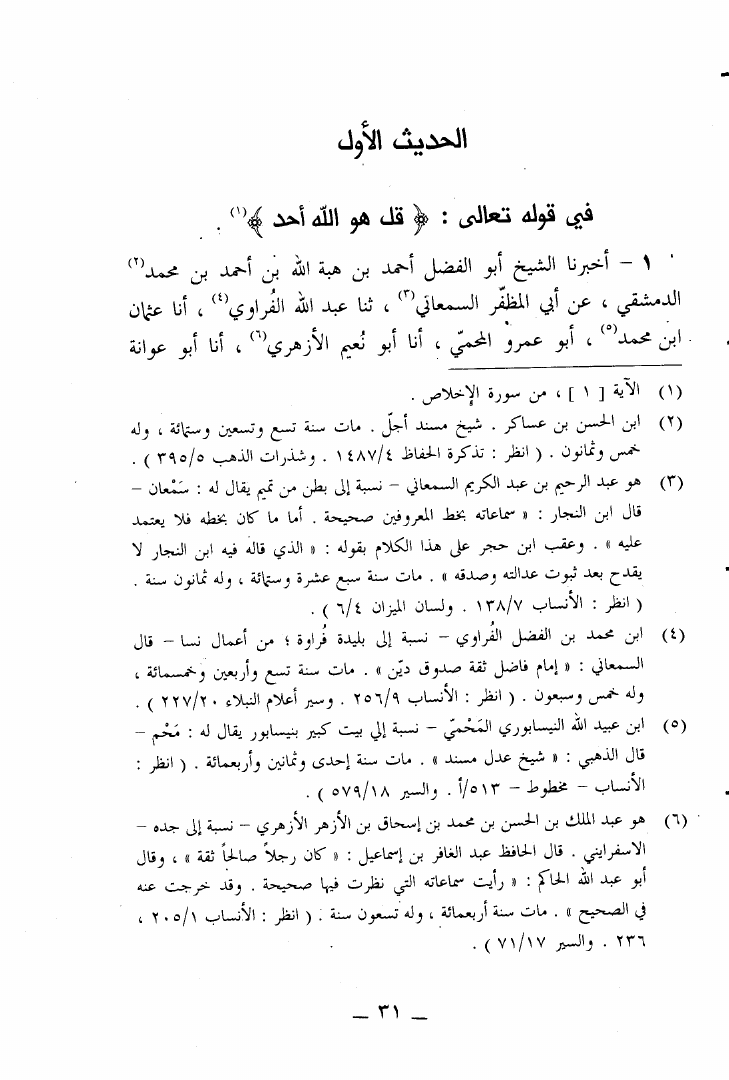 الحديث الأول
في قوله تعالى : ﴿ قل هو الله أحد ﴾(١) .
١ – أخبرنا الشيخ أبو الفضل أحمد بن هبة الله بن أحمد بن محمد(٢)
الدمشقي ، عن أبي المظفّر السمعاني(٣) ، ثنا عبد الله الفُراوي(٤) ، أنا عثمان
ابن محمد(٥) ، أبو عمرو المحميّ ، أنا أبو نُعيم الأزهري(٦) ، أنا أبو عوانة
(١) الآية [ ١ ] ، من سورة الإخلاص .
(٢) ابن الحسن بن عساكر . شيخ مسند أجلّ . مات سنة تسع وتسعين وستمائة ، وله
خمس وثمانون . ( انظر : تذكرة الحفاظ ١٤٨٧/٤ . وشذرات الذهب ٣٩٥/٥ ) .
(٣) هو عبد الرحيم بن عبد الكريم السمعاني – نسبة إلى بطن من تميم يقال له : سَمْعان –
قال ابن النجار : « سماعاته بخط المعروفين صحيحة . أما ما كان بخطه فلا يعتمد
عليه » . وعقب ابن حجر على هذا الكلام بقوله : « الذي قاله فيه ابن النجار لا
يقدح بعد ثبوت عدالته وصدقه » . مات سنة سبع عشرة وستمائة ، وله ثمانون سنة .
( انظر : الأنساب ١٣٨/٧ . ولسان الميزان ٦/٤ ) .
(٤) ابن محمد بن الفضل الفُراوي – نسبة إلى بليدة فُراوة ؛ من أعمال نسا – قال
السمعاني : « إمام فاضل ثقة صدوق ديّن » . مات سنة تسع وأربعين وخمسمائة ،
وله خمس وسبعون . ( انظر : الأنساب ٢٥٦/٩ . وسير أعلام النبلاء ٢٢٧/٢٠ ) .
(٥) ابن عبيد الله النيسابوري المَحْميّ – نسبة إلي بيت كبير بنيسابور يقال له : مَحْم –
قال الذهبي : « شيخ عدل مسند » . مات سنة إحدى وثمانين وأربعمائة . ( انظر :
الأنساب – مخطوط – ٥١٣/أ . والسير ٥٧٩/١٨ ) .
(٦) هو عبد الملك بن الحسن بن محمد بن إسحاق بن الأزهر الأزهري – نسبة إلى جده –
الاسفرايني . قال الحافظ عبد الغافر بن إسماعيل : « كان رجلاً صالحاً ثقة » ، وقال
أبو عبد الله الحاكم : « رأيت سماعاته التي نظرت فيها صحيحة . وقد خرجت عنه
في الصحيح » . مات سنة أربعمائة ، وله تسعون سنة . ( انظر : الأنساب ٢٠٥/١ ،
٢٣٦ . والسير ٧١/١٧ ) .
– ٣١ –